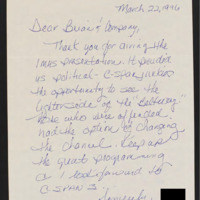 March 22, 1996
Dear Brian & Company,
Thank you for airing the
Imus presentation. It provided
us political - C-Span junkies
the opportunity to see the
lighter side of the "Beltway"
those who were offended
had the option of changing
the channel. Keep up
the great programming
& I look forward to
C-SPAN 3
Sincerely,